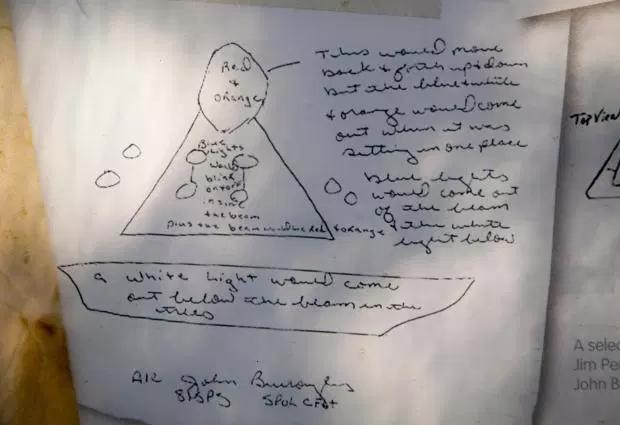 Red
+
orange
This would move
back + forth up + down
but the blue + white
+ orange would come
out when it was
sitting in one place
Blue
lights
would
blink
on + off
inside
the beam
plus the beam would be Red + orange
blue lights
would come out
of the beam
+ the white
light below
a white light would come
out below the beam in the
trees
A1C John Burroughs
81SPS
Top View
A selec
Jim Pe
John B